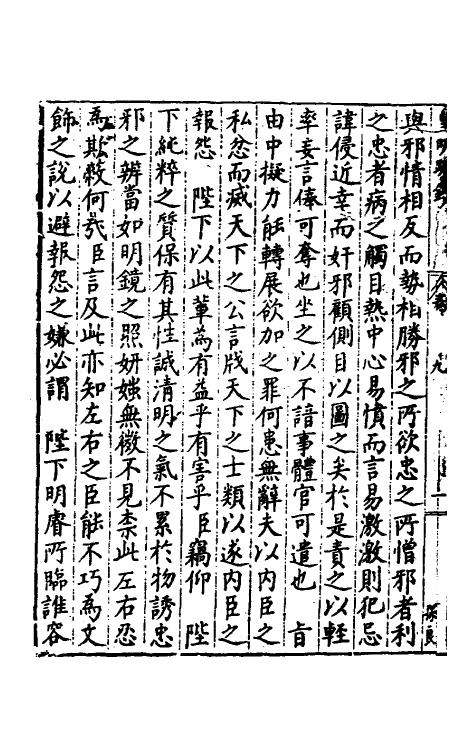 與邪情相反而勢相勝邪之所欲忠之所憎邪者利
之忠者病之觸目熱中心易憤而言易激激則犯忌
諱侵近幸而奸邪顧側目以圖之矣於是責之以輕
率妄言俸可奪也坐之以不諳事體官可遣也 旨
由中擬力能轉展欲加之罪何患無辭夫以内臣之
私忿而威天下之公言戕天下之士類以遂内臣之
報怨 陛下以此輩為有益乎有害乎臣竊仰 陛
下純粹之質保有其性誠清明之氣不累於物誘忠
邪之辨當如明鏡之照妍媸無微不見柰此左右忍
為斯殺何哉臣言及此亦知左右之臣能不巧為文
飾之說以避報怨之嫌必謂 陛下明睿所臨誰容